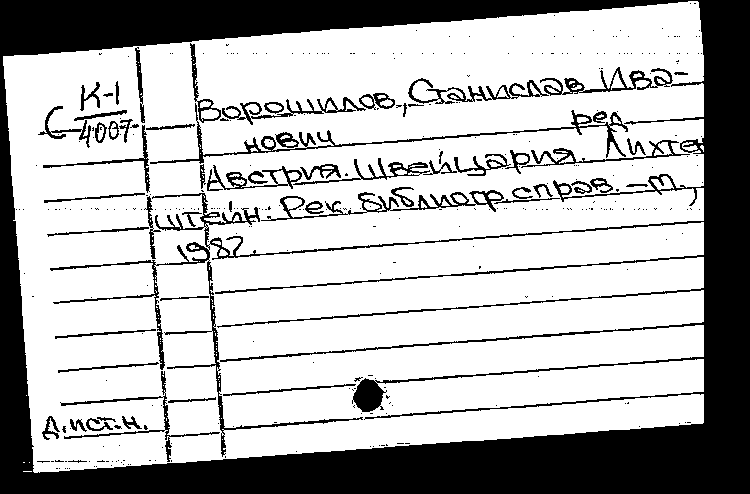 С К-1
4007
Ворошилов, Станислав Ива-
нович ред.
Австрия. Швейцария. Лихтен
штейн: Рек. библиогр. справ. – М.,
1987.
д.ист.н.